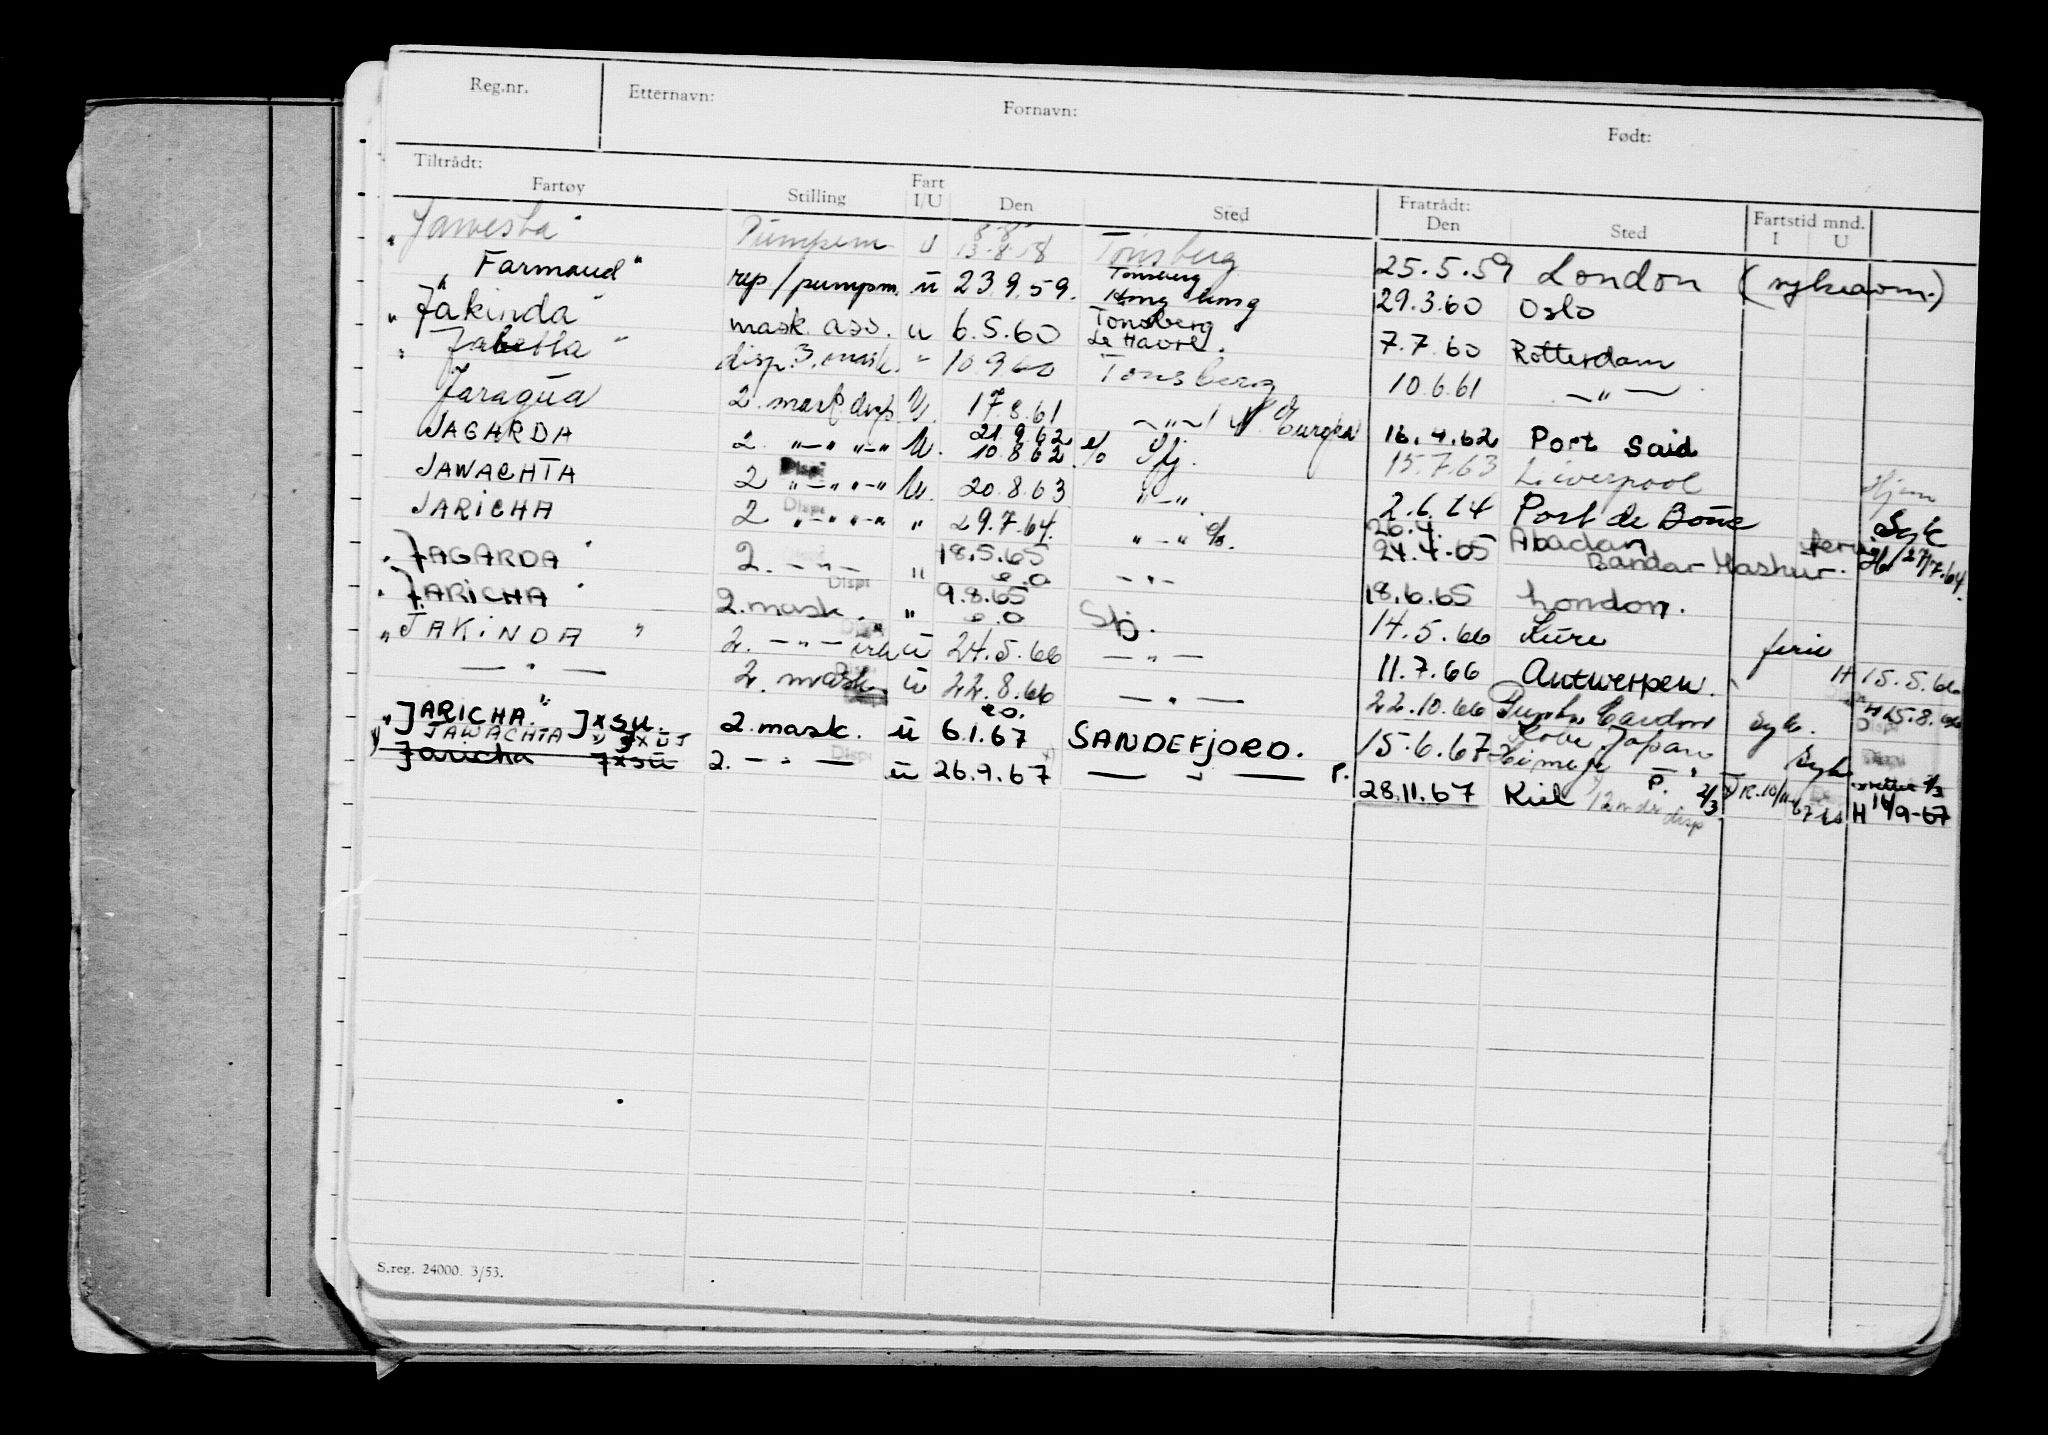 Reg.nr. Etternavn: Fornavn: Født:
Tiltrådt: Fratrådt:
Fartøy Stilling Fart I/U Den Sted Den Sted Fartstid mnd. I U
"Jawesta" Pumpem U 13.8.58 Tönsberg 25.5.59 London
"Farmand" rep/pumpm. ü 23.9.59. Tönsberg Hong Kong 29.3.60 Oslo
"Jakinda" mask. ass. u 6.5.60 Tönsberg Le Havre. 7.7.60 Rotterdam
"Jabetta" disp. 3. mask. " 10.9.60 Tönsberg 10.6.61 —"—
Jaragua 2. mask disp U. 17.8.61 —"— Europa 16.4.62 Port Said
JAGARDA 2. "—" "—" U. 21.9.62 10.8.62 e/o Sfj. 15.7.63 Liverpool Hjem
JAWACHTA 2 "—" "—" U. 20.8.63 "—" 2.6.64 Port de Bouc Syk
Disp
JARICHA 2 "—" "—" " 29.7.64. "—" e/o. 26.4. Abadan
Disp
24.4.65 Bandar Mashur. 27/7.64.
"JAGARDA" 2. —"— " 18.5.65 e.o —"— 18.6.65 London.
Disp
"JARICHA" 2. mask. " 9.8.65 e.o Sfj. 14.5.66 Kure ferie
"JAKINDA" 2. —"— ü 24.5.66 —"— 11.7.66 Antwerpen. H 15.5.66
Disp
—"— 2. mask. ü 22.8.66 e.o. —"— 22.10.66 Syk. H 25.8.66
Disp
"JARICHA." JXSU. 2. mask. ü 6.1.67 SANDEFJORD. 15.6.67 Kobe, Japan Himeji Syk
"JAWACHTA"
Jaricha JXSU 2. —"— ü 26.9.67 —"— P. 28.11.67 Kiel 12 mdr disp P. 2/3 H 14/9-67
Disp
S.reg. 24000. 3/53.